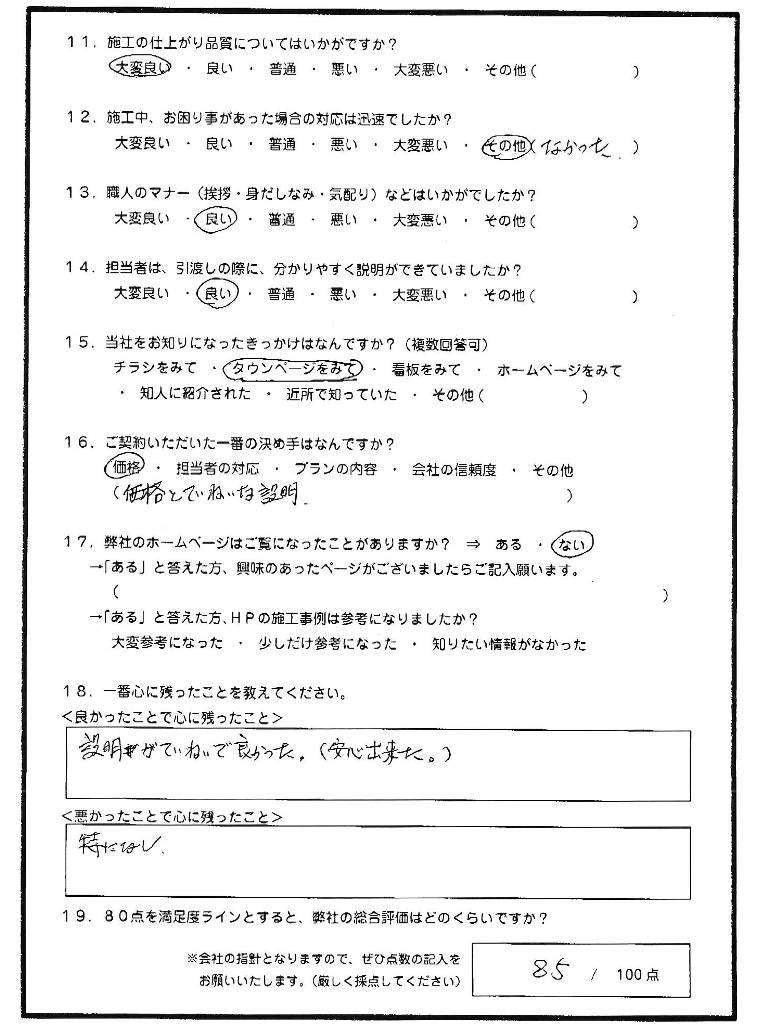 １１．施工の仕上がり品質についてはいかがですか？
大変良い ・ 良い ・ 普通 ・ 悪い ・ 大変悪い ・ その他（　　　　　　　）
１２．施工中、お困り事があった場合の対応は迅速でしたか？
大変良い ・ 良い ・ 普通 ・ 悪い ・ 大変悪い ・ その他（なかった．）
１３．職人のマナー（挨拶・身だしなみ・気配り）などはいかがでしたか？
大変良い ・ 良い ・ 普通 ・ 悪い ・ 大変悪い ・ その他（　　　　　　　）
１４．担当者は、引渡しの際に、分かりやすく説明ができていましたか？
大変良い ・ 良い ・ 普通 ・ 悪い ・ 大変悪い ・ その他（　　　　　　　）
１５．当社をお知りになったきっかけはなんですか？（複数回答可）
チラシをみて ・ タウンページをみて ・ 看板をみて ・ ホームページをみて
・ 知人に紹介された ・ 近所で知っていた ・ その他（　　　　　　　）
１６．ご契約いただいた一番の決め手はなんですか？
価格 ・ 担当者の対応 ・ プランの内容 ・ 会社の信頼度 ・ その他
（価格とていねいな説明．　　　　　　　）
１７．弊社のホームページはご覧になったことがありますか？ ⇒ ある ・ ない
→「ある」と答えた方、興味のあったページがございましたらご記入願います。
（　　　　　　　）
→「ある」と答えた方、ＨＰの施工事例は参考になりましたか？
大変参考になった ・ 少しだけ参考になった ・ 知りたい情報がなかった
１８．一番心に残ったことを教えてください。
＜良かったことで心に残ったこと＞
説明がていねいで良かった。（安心出来た。）
＜悪かったことで心に残ったこと＞
特になし．
１９．８０点を満足度ラインとすると、弊社の総合評価はどのくらいですか？
※会社の指針となりますので、ぜひ点数の記入を
お願いいたします。（厳しく採点してください）
85 / 100点